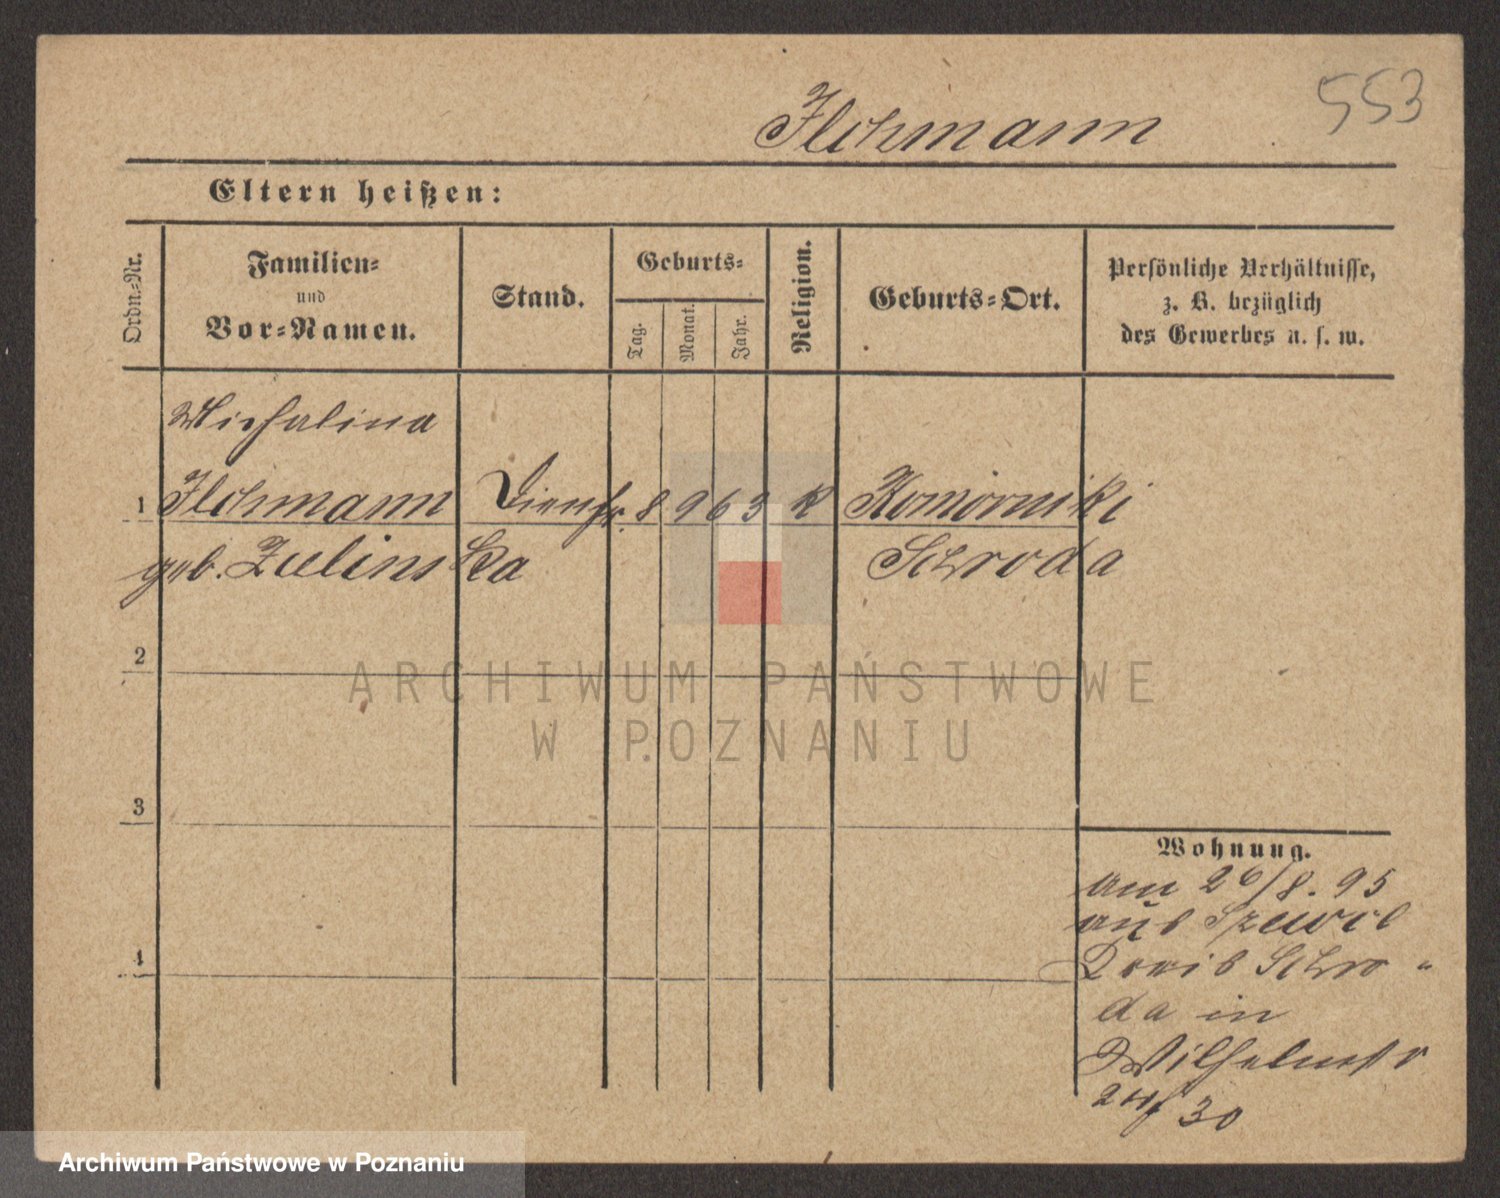 553
Flohmann
Eltern heißen:
Ordn.-Nr.
Familien-
und
Vor-Namen.
Stand.
Geburts-
Tag.
Monat.
Jahr.
Religion.
Geburts-Ort.
Persönliche Verhältnisse,
z. B. bezüglich
des Gewerbes u. s. w.
Michalina
1 Flohmann Dienstr. 8 9 63 K Komorniki
geb. Zulinska Schroda
2
ARCHIWUM PAŃSTWOWE
W POZNANIU
3
Wohnung.
am 26/8. 95
aus
4
Kreis Schro-
da in
Wilhelmstr
24/30
Archiwum Państwowe w Poznaniu